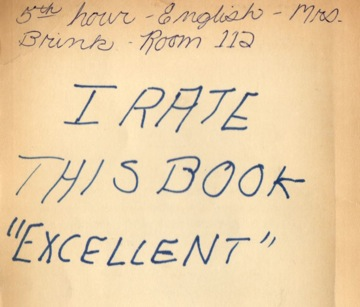 5th hour - English - Mrs.
Brink - Room 112
I RATE
THIS BOOK
"EXCELLENT"